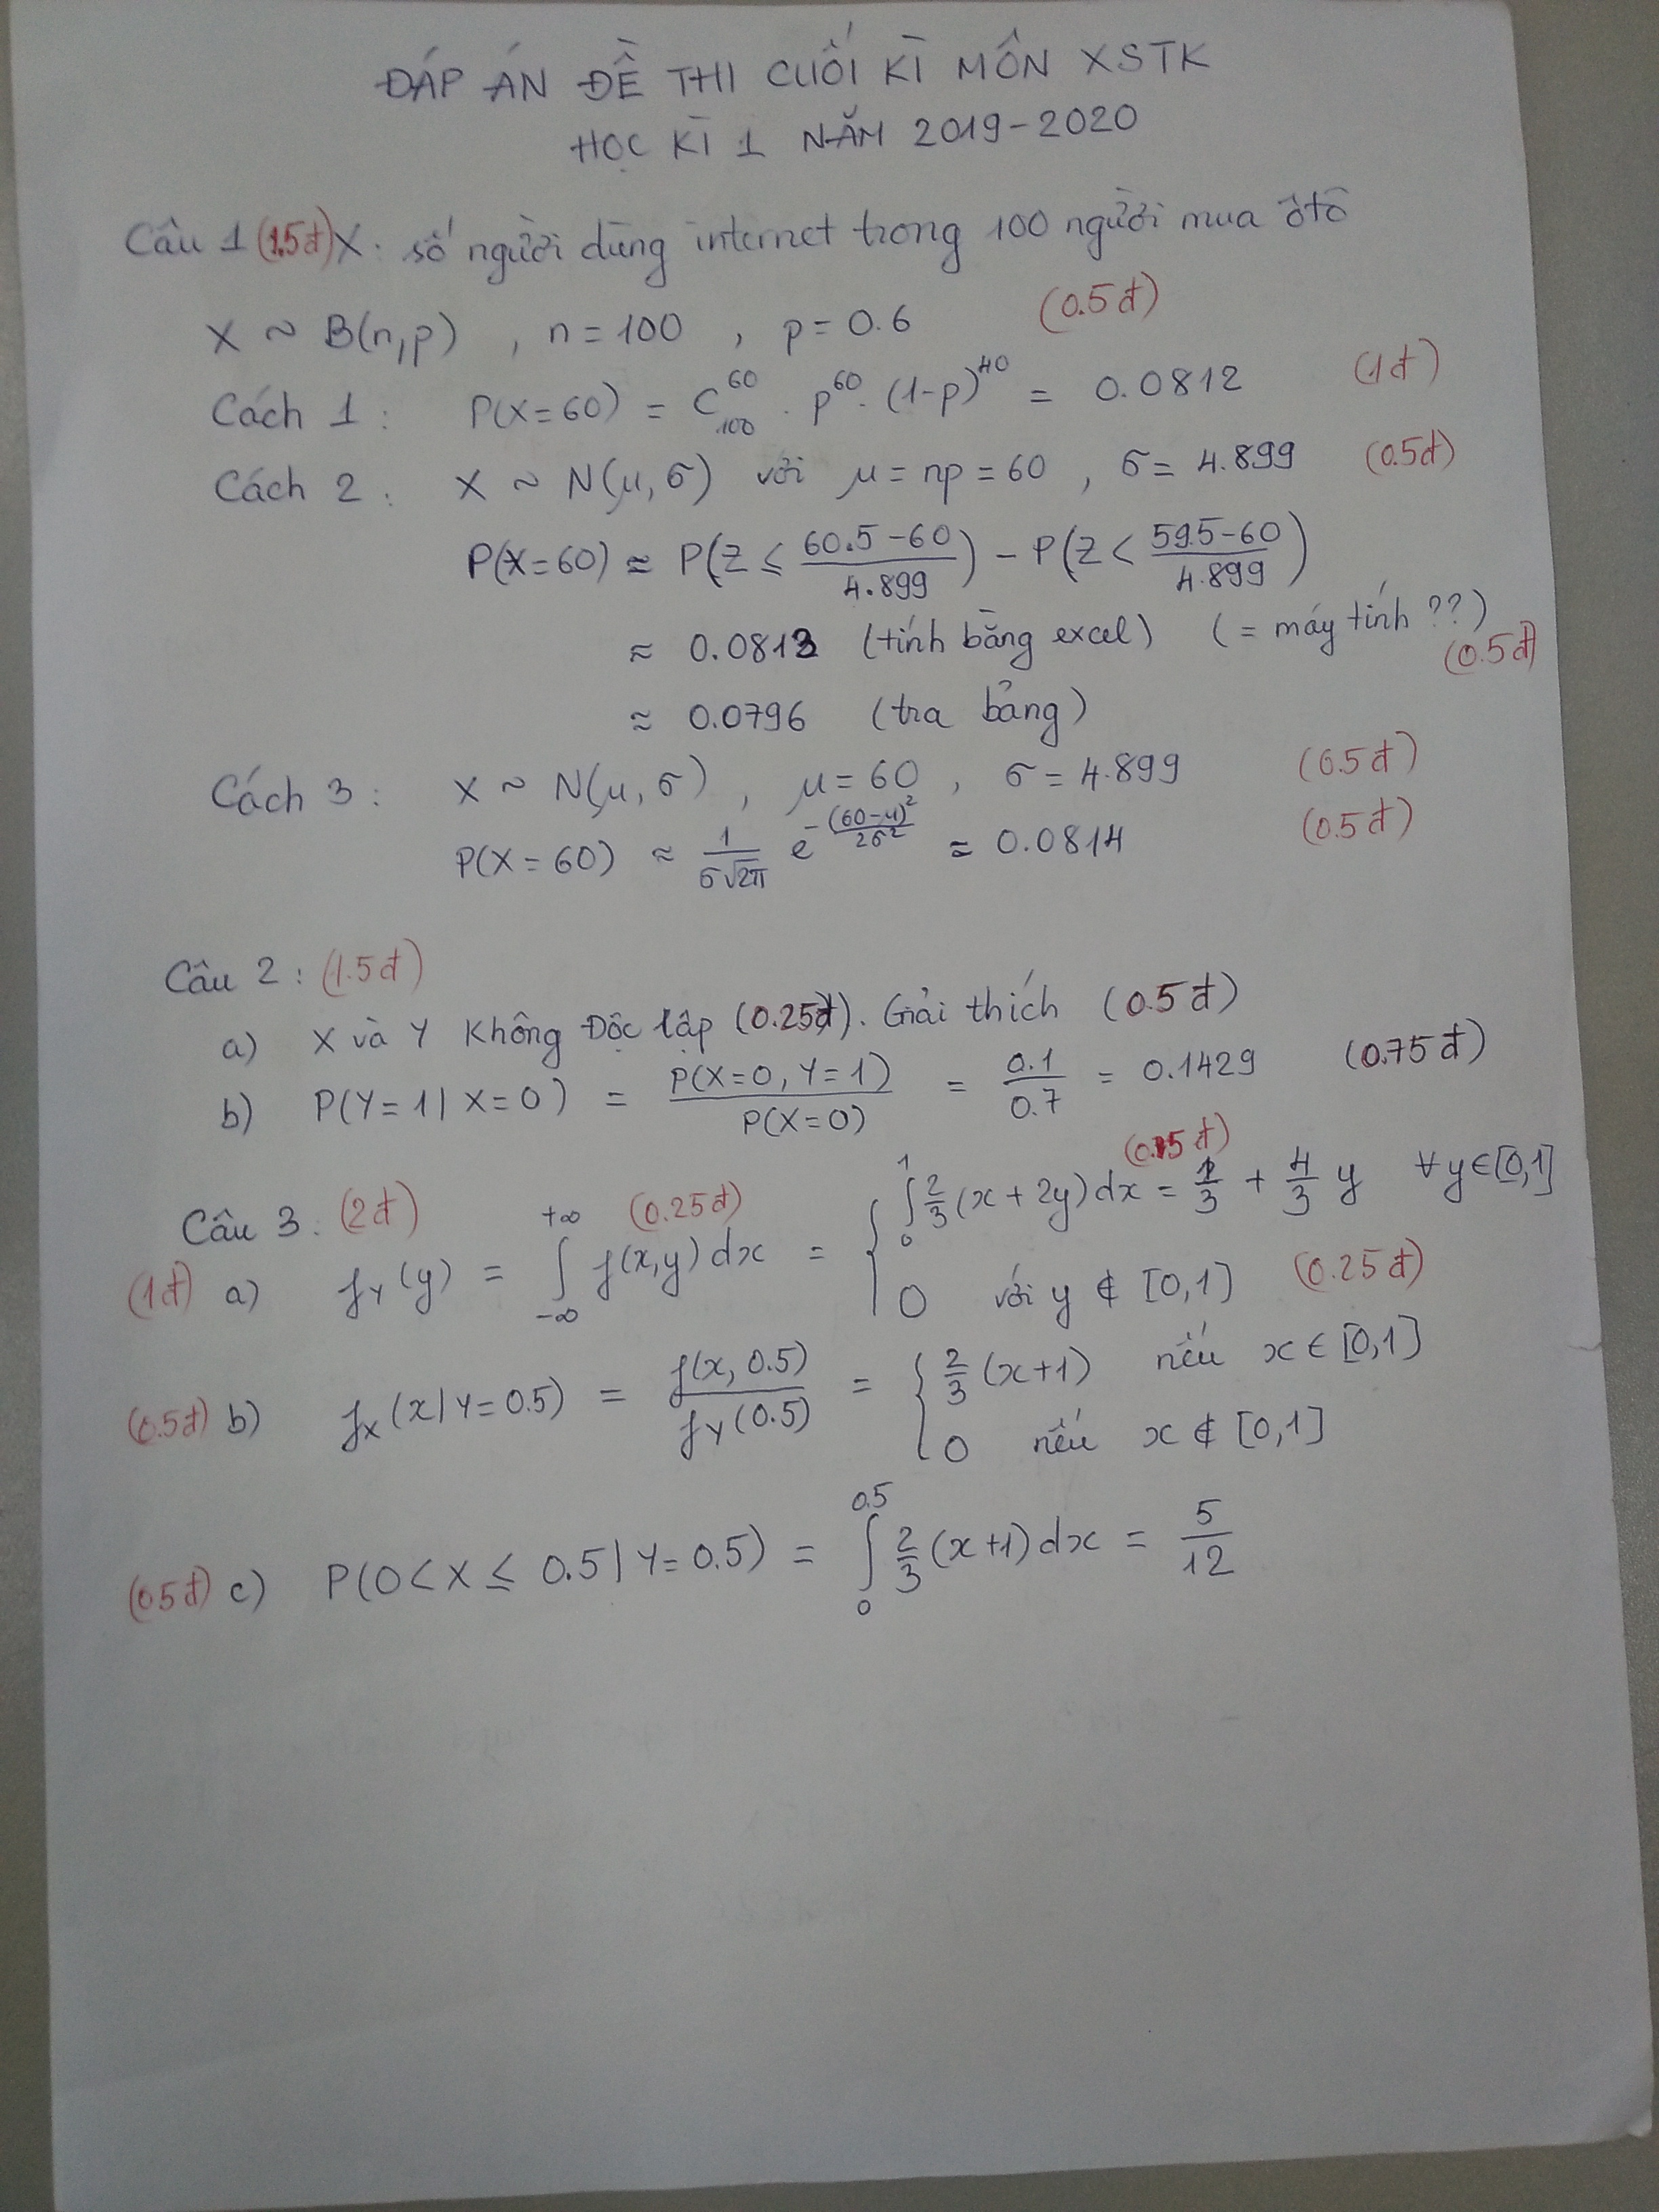 ĐÁP ÁN ĐỀ THI CUỐI KÌ MÔN XSTK
HỌC KÌ 1 NĂM 2019-2020
Câu 1 (1.5đ) X: số người dùng internet trong 100 người mua ôtô
X ~ B(n,p) , n = 100 , p = 0.6 (0.5đ)
Cách 1: P(X=60) = C_100^60 . p^60 . (1-p)^40 = 0.0812 (1đ)
Cách 2: X ~ N(μ, σ) với μ = np = 60 , σ = 4.899 (0.5đ)
P(X=60) ≈ P(Z ≤ (60.5-60)/4.899) - P(Z < (59.5-60)/4.899)
≈ 0.0813 (tính bằng excel) (= máy tính ??) (0.5đ)
≈ 0.0796 (tra bảng)
Cách 3: X ~ N(μ, σ) , μ = 60 , σ = 4.899 (0.5đ)
P(X=60) ≈ 1/(σ√2π) e^(-(60-μ)²/2σ²) ≈ 0.0814 (0.5đ)
Câu 2: (1.5đ)
a) X và Y Không Độc lập (0.25đ). Giải thích (0.5đ)
b) P(Y=1|X=0) = P(X=0, Y=1)/P(X=0) = 0.1/0.7 = 0.1429 (0.75đ)
Câu 3: (2đ)
(1đ) a) f_Y(y) = ∫_{-∞}^{+∞} f(x,y)dx (0.25đ) = { ∫_0^1 2/3 (x+2y)dx = 1/3 + 4/3 y ∀y∈[0,1]
0 với y ∉ [0,1] (0.25đ)
(0.5đ) b) f_X(x|Y=0.5) = f(x, 0.5)/f_Y(0.5) = { 2/3 (x+1) nếu x ∈ [0,1]
0 nếu x ∉ [0,1]
(0.5đ) c) P(0<X≤0.5|Y=0.5) = ∫_0^0.5 2/3 (x+1)dx = 5/12